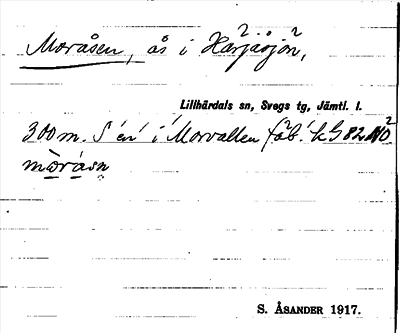 Moråsen, ås i Härjåsjön,
Lillhärdals sn, Svegs tg, Jämtl. l.
300 m. S 'en' i 'Morvallen fäb.' k G 82 NO
mòrásn
S. ÅSANDER 1917.